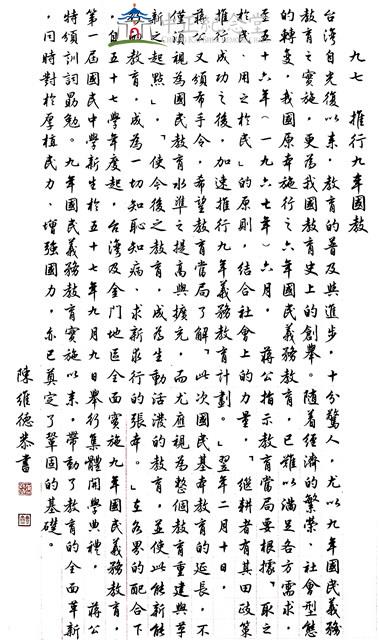 中正紀念堂
九七　推行九年國教
台灣自光復以來，教育的普及與進步，十分驚人，尤以九年國民義務
教育之實施，更為我國教育史上的創舉。隨着經濟的繁榮、社會型態
的轉變，我國原本施行之六年國民義務教育，已難以滿足各方需求，
至五十六年（一九六七年）六月，　蔣公指示教育當局要根據「取之
於民、用之於民」的原則，結合社會上的力量，「繼耕者有其田政策
推行成功之後，加速推行九年義務教育計劃。」翌年二月十日，
蔣公又頒布手令，希望教育當局了解「此次國民基本教育的延長，不
僅須視為國民教育水準之提高與擴充，而尤應視為整個教育重建與革
新之起點」，「使今後之教育，成為生動活潑的教育，並使此能新能
行的教育，成為一切知恥知病、求新求行的張本。」在各界的配合下
，自五十七學年度起，台灣及金門地區全面實施九年國民義務教育，
第一屆國民中學新生於五十七年九月九日舉行集體開學典禮，　蔣公
特頒訓詞勗勉。九年國民義務教育實施以來，帶動了教育的全面革新
，同時對於厚植民力、增強國力，亦已奠定了鞏固的基礎。
陳維德恭書